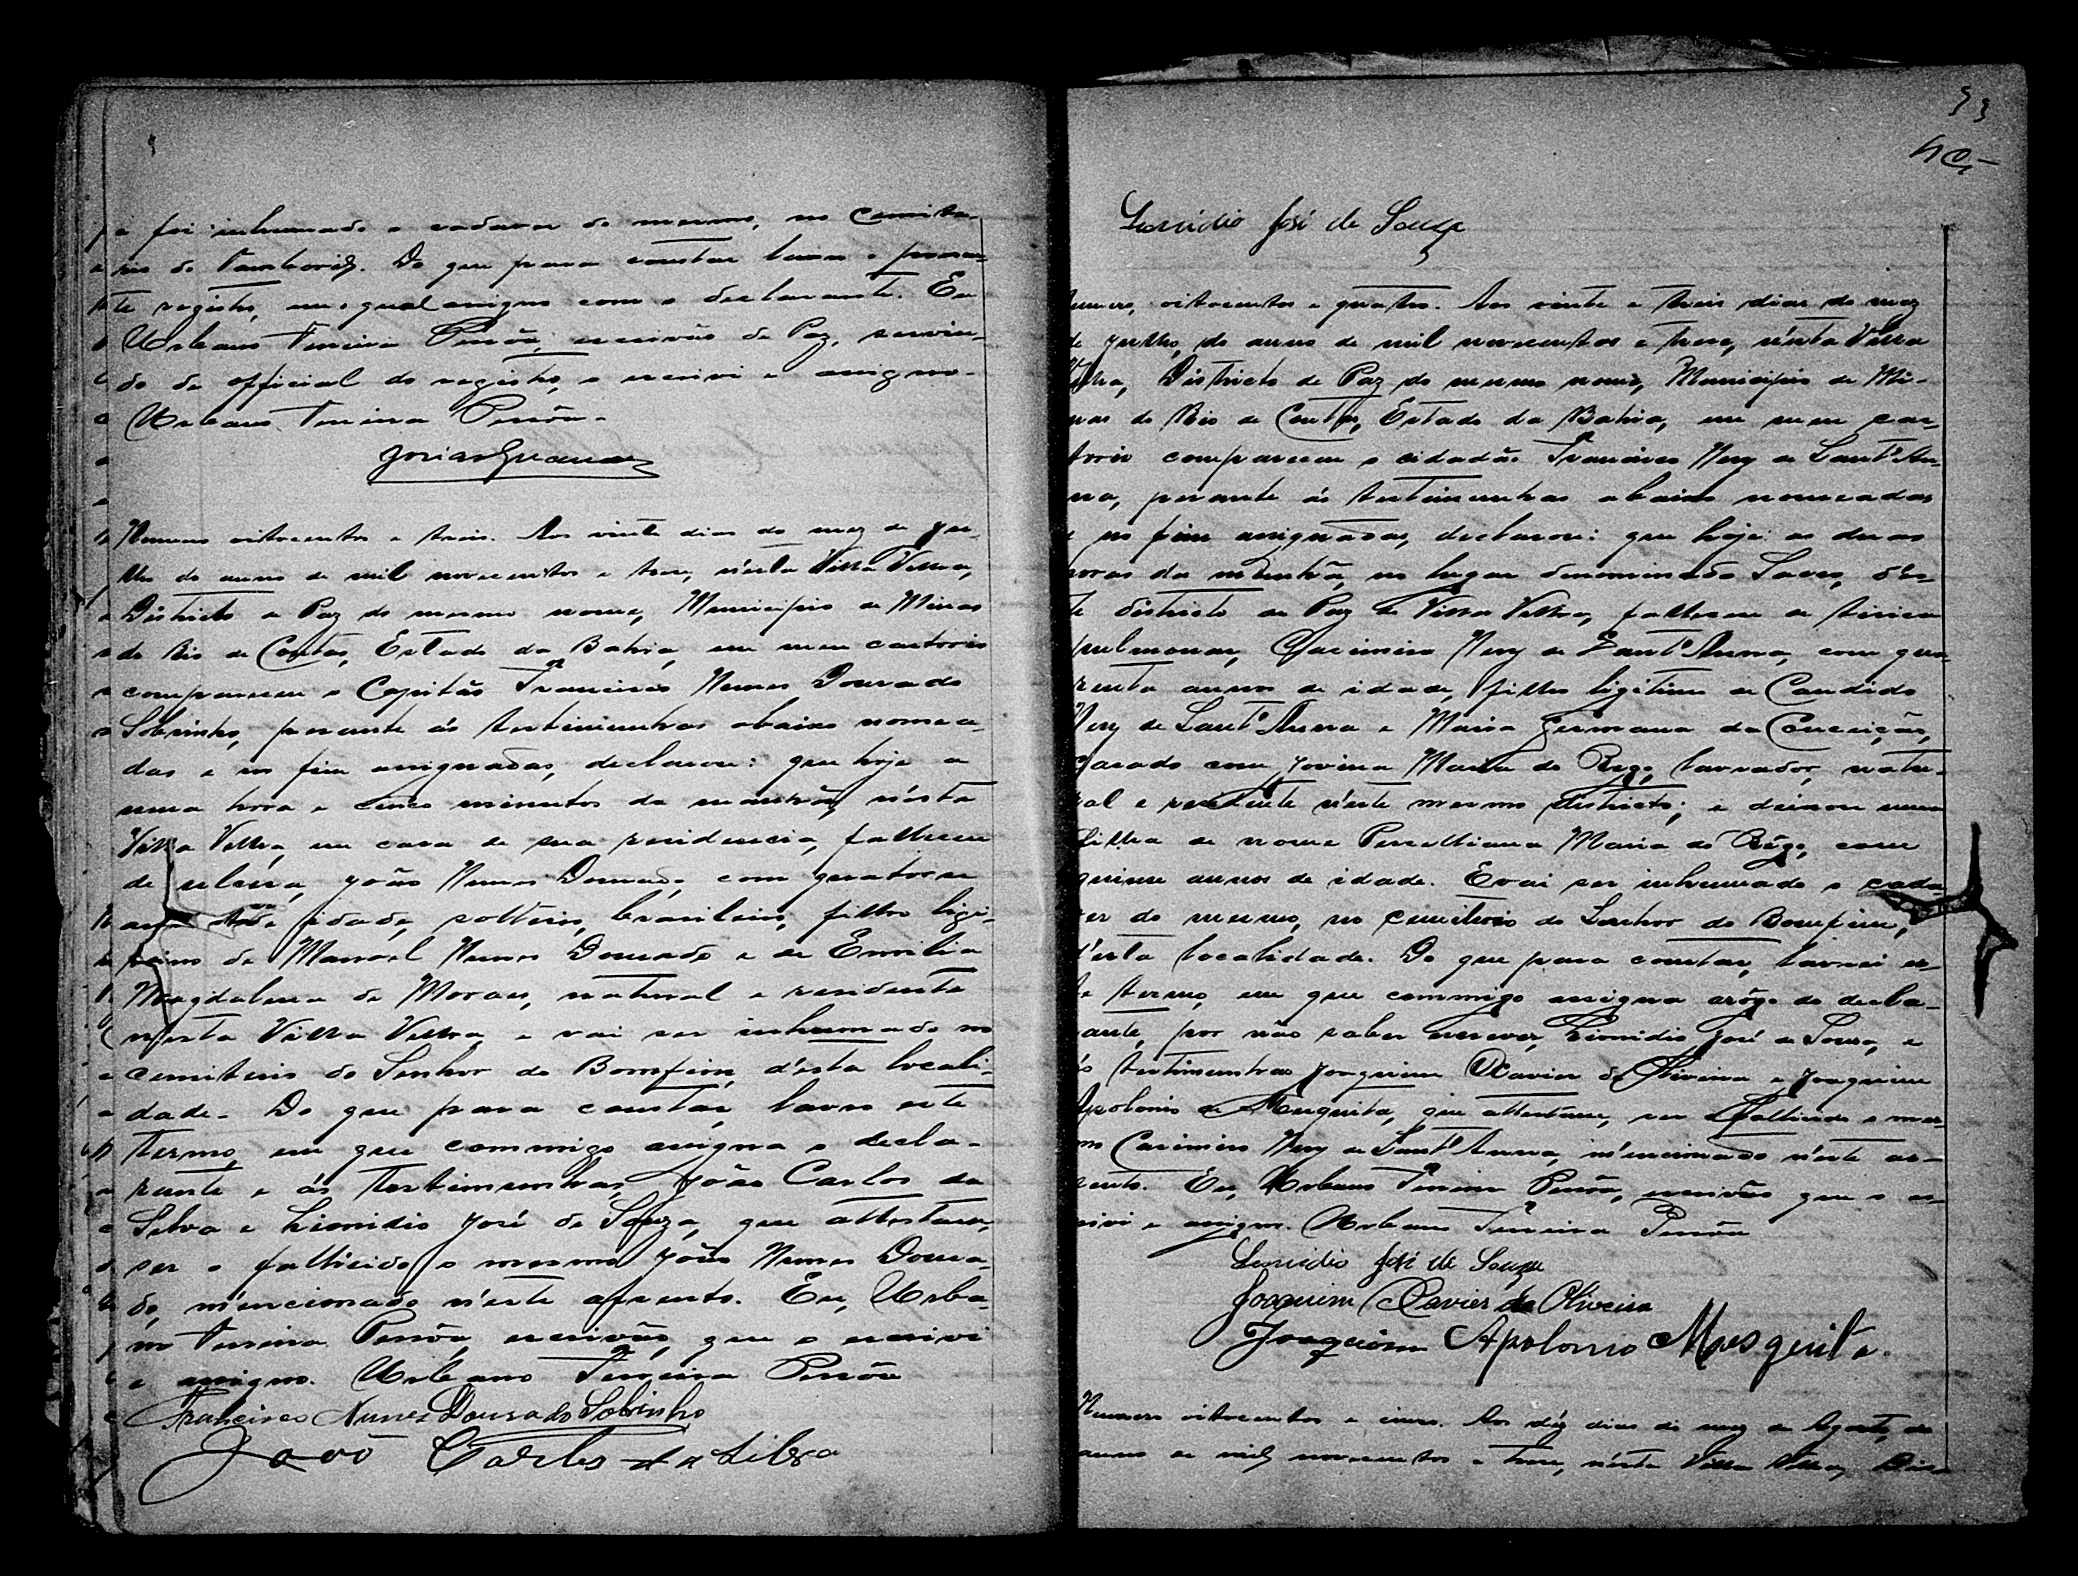 e foi inhumado o cadaver do mesmo, no Cemite-
rio do Tamboril. Do que para constar lavro o presen-
te registo, em o qual assigno com o declarante. Eu
Urbano Ferreira Pessôa, escrivão de Paz, servin-
do de official do registo, o escrivi e assigno.
Urbano Ferreira Pessôa.
Numero oitocentos e treis. Aos vinte dias do mez de Ju-
lho do anno de mil novecentos e treze, n'esta Villa Velha,
Districto de Paz do mesmo nome, Municipio de Minas
do Rio de Contas, Estado da Bahia, em meu cartorio
compareceu o Capitão Francisco Nunes Dourado
Sobrinho, perante ás testimunhas abaixo nomea-
das e no fim assignadas, declarou: que hoje a
uma hora e cinco minutos da manhã, n'esta
Villa Velha, em casa de sua residencia, falleceu
de João Nunes Dourado, com quatorze
annos de idade, solteiro, brasileiro, filho ligi-
timo de Manoel Nunes Dourado e de Emilia
Magdalena de Moraes, natural e residente
n'esta Villa Velha e vai ser inhumado no
cemiterio do Senhor do Bomfim, d'esta locali-
dade. Do que para constar, lavro este
termo, em que commigo assigna o decla-
rante e ás testimunhas, João Carlos da
Silva e Lionidio José de Souza, que attestam,
ser o fallicido o mesmo João Nunes Doura-
do, mencionado n'este assento. Eu, Urba-
no Ferreira Pessôa, escrivão, que o escrivi
e assigno. Urbano Ferreira Pessôa
Francisco Nunes Dourado Sobrinho
João Carlos da Silva
40
Leonidio José de Souza
Numero, oitocentos e quatro. Aos vinte e treis dias do mez
de Julho, do anno de mil novecentos e treze, n'esta Villa
Velha, Districto de Paz do mesmo nome, Municipio de Mi-
nas do Rio de Contas, Estado da Bahia, em meu car-
torio compareceu o cidadão Francisco Nery de Sant'An-
na, perante ás testimunhas abaixo nomeadas
e no fim assignadas, declarou: que hoje as duas
horas da manhã, no lugar denominado d'es-
te districto de Paz de Villa Velha, falleceu de tisica
pulmonar, Casimiro Nery de Sant'Anna, com qua-
renta annos de idade, filho ligitimo de Candido
Nery de Sant'Anna e Maria Germana da Conceição,
casado com Jovina Maria do Rego, lavrador, natu-
ral e residente n'este mesmo districto; e deixou uma
filha de nome Maria do Rêgo, com
quinze annos de idade. E vai ser inhumado o cada-
ver do mesmo, no cemiterio do Senhor do Bomfim,
d'esta localidade. Do que para constar, lavrei es-
te termo, em que commigo assigna arôgo do decla-
rante, por não saber escrever, Lionidio José de Souza, e
ás testimunhas Joaquim Xavier de Oliveira e Joaquim
Apolonio de Mesquita, que attestam, ser o fallicido o mes-
mo Casimiro Nery de Sant'Anna, mencionado n'este as-
sento. Eu, Urbano Ferreira Pessôa, escrivão que o es-
crivi e assigno. Urbano Ferreira Pessôa
Leonidio José de Souza
Joaquim Xavier de Oliveira
Joaquim Apolonio Mesquita.
Numero oitocentos e cinco. Aos déz dias do mez de Agosto, do
anno de mil novecentos e treze, n'esta Villa Velha, Dis-